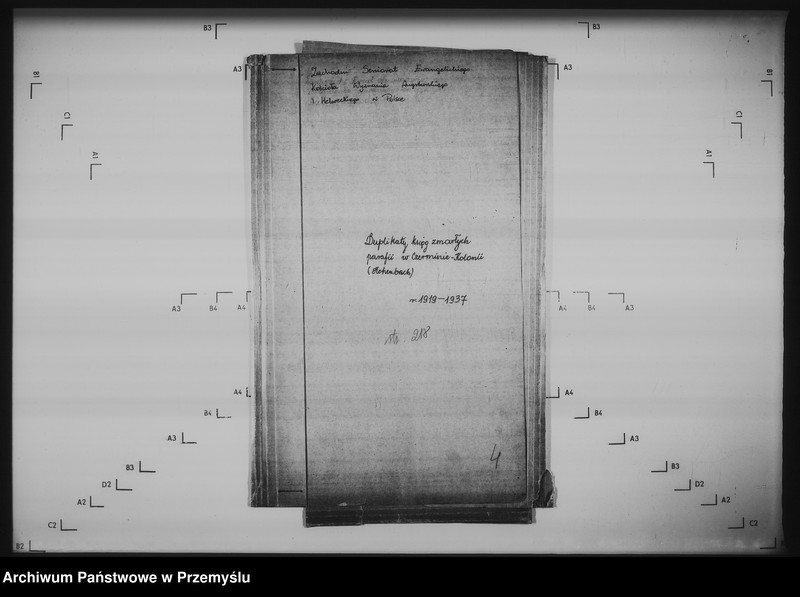 B3
B3
A3
A3
Zachodni Seniorat Ewangelickiego
Kościoła Wyznania Augsburskiego
i Helweckiego w Polsce
B1
B1
C1
C1
A1
A1
Duplikaty ksiąg zmarłych
parafii w Czerminie-Kolonii
(Hohenbach)
r. 1919-1937
A3
B4
A4
A4
B4
A3
str 218
A4
A4
B4
B4
A3
A3
4
B3
B3
D2
D2
A2
A2
C2
C2
B2
Archiwum Państwowe w Przemyślu